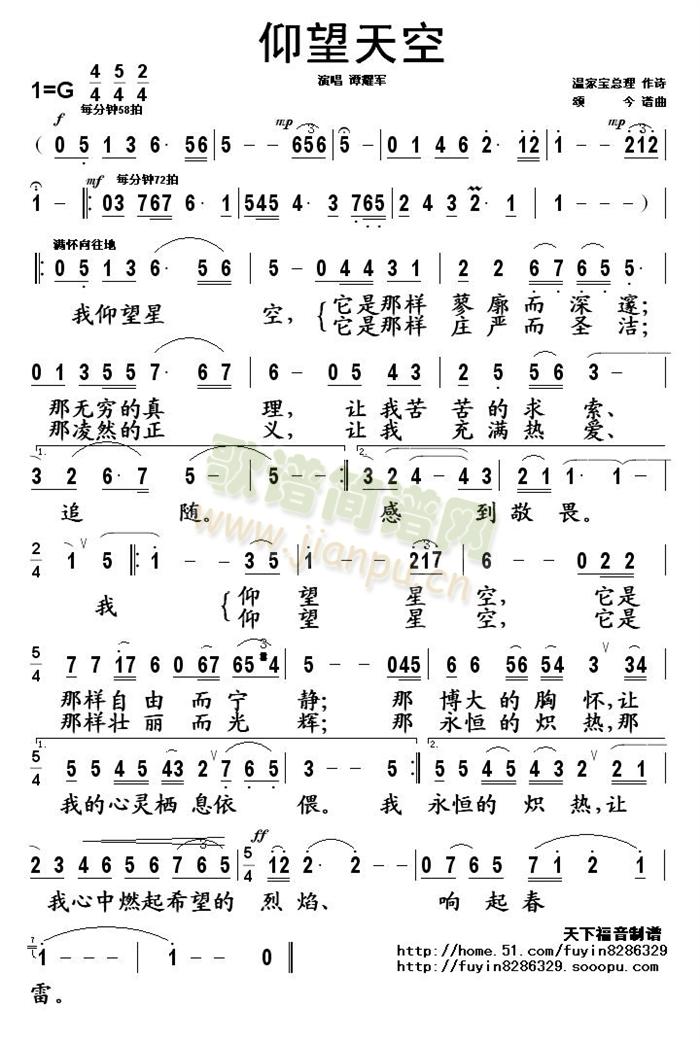 仰望天空
1=G 4/4 5/4 2/4
演唱 谭耀军
温家宝总理 作诗
颂 今 谱曲
f 每分钟58拍 mp 3 mp 3
( 0 5 1 3 6· 56 | 5 - - 656 | 5 - 0 1 4 6 2· 12 | 1 - - 212 |
mf 每分钟72拍
1 - ‖: 03 767 6· 1 | 545 4· 3 765 | 2 4 3 2· 1 | 1 - - ) |
满怀向往地
‖: 0 5 1 3 6· 5 6 | 5 - 0 4 4 3 1 | 2 2 6 7 6 5 5· |
我仰望星 空, { 它是那样 蓼 廓 而 深 邃;
它是那样 庄 严 而 圣 洁;
0 1 3 5 5 7· 6 7 | 6 - 0 5 4 3 | 2 5 5 6 3 - |
那无穷的真 理, 让我苦 苦的求 索、
那凌然的正 义, 让我 充满热 爱、
1. 2.
3 2 6· 7 5 - | 5 - - :‖ 3 2 4 - 4 3 | 2 1 1· 1 - |
追 随。 感 到敬 畏。
2/4 1 5 ‖: 1 - | - 3 5 | 1 - | - 217 | 6 - | 0 2 2 |
我 { 仰 望 星 空, 它是
仰 望 星 空, 它是
5/4 7 7 17 6 0 67 | 65 4 5 - - 045 | 6 6 56 54 3 34 |
那样自由 而宁 静; 那 博大的胸 怀,让
那样壮 丽 而光 辉; 那 永恒的炽 热,那
1. 2.
5/4 5 5 45 43 2 7 6 5 | 3 - - 5 :‖ 5 5 4 5 4 3 2 2 1 |
我的心灵栖 息依 偎。 我 永恒的 炽 热,让
ff
2 3 4 6 5 6 7 6 5 | 5/4 12 2· - - | 0 7 6 5 7 1 2 1 |
我心中燃起希望的 烈 焰、 响 起 春
1 - - | 1 - 0 ‖
雷。
天下福音制谱
http://home.51.com/fuyin8286329
http://fuyin8286329.sooopu.com
歌谱简谱网
www.jianpu.cn